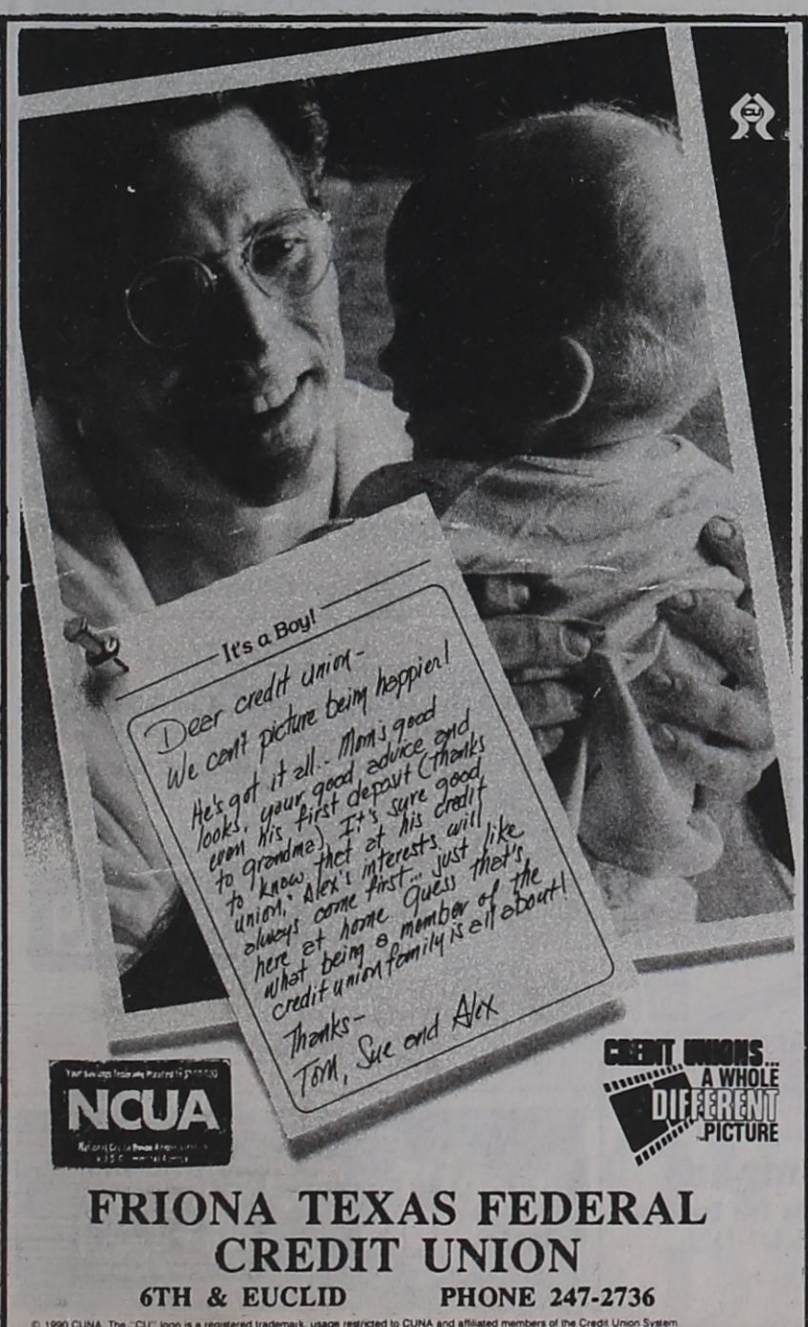 CU
It's a Boy!
Dear credit union-
We can't picture being happier!
He's got it all... Mom's good
looks, your good advice and
even his first deposit (thanks
to grandma). It's sure good
to know that at his credit
union, Alex's interests will
always come first... just like
here at home. Guess that's
what being a member of the
credit union family is all about!
Thanks-
Tom, Sue and Alex
Your Savings Federally Insured to $100,000
NCUA
National Credit Union Administration
a U.S. Government Agency
CREDIT UNIONS...
A WHOLE
DIFFERENT
PICTURE
FRIONA TEXAS FEDERAL
CREDIT UNION
6TH & EUCLID PHONE 247-2736
© 1990 CUNA. The "CU" logo is a registered trademark, usage restricted to CUNA and affiliated members of the Credit Union System.